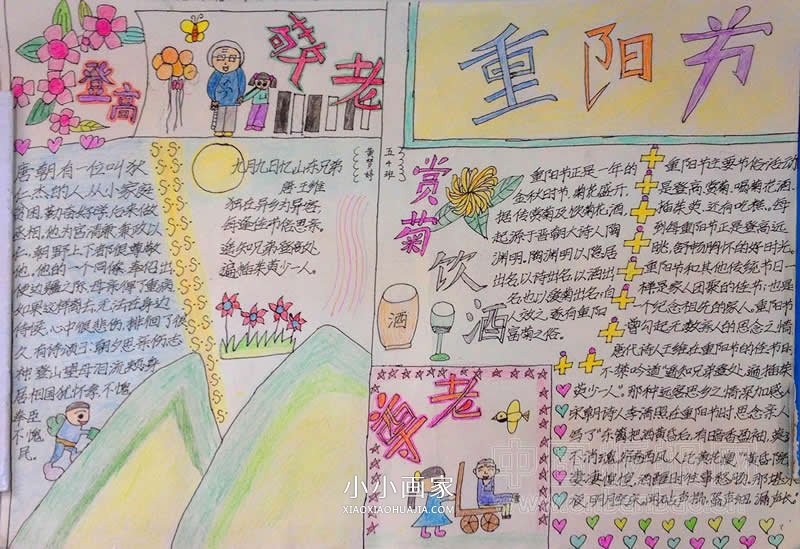 登高
敬老
重阳节
唐朝有一位叫狄
仁杰的人,从小家庭
贫困,勤奋好学,后来做
丞相,他为官清廉秉政以
仁,朝野上下都很尊敬
他,他的一个同僚,奉诏出
使边疆之际,母亲得了重病
如果这样离去,无法在身边
侍候,心中很悲伤,
久
居相国犹怀亲不愧
孝臣
不愧
民。
九月九日忆山东兄弟
唐 王维
独在异乡为异客,
每逢佳节倍思亲。
遥知兄弟登高处
遍插茱萸少一人。
五4班
赏菊
重阳节正是一年的
金秋时节,菊花盛开,
据传赏菊及饮菊花酒,
起源于晋朝大诗人陶
渊明。陶渊明以隐居
出名,以诗出名,以酒出
名也以爱菊出名;后
人效之,遂有重阳
赏菊之俗。
饮酒
酒
重阳节主要节俗活动
是登高,赏菊,喝菊花酒,
插茱萸,还有吃糕。每
到得重阳节正是登高远
眺,舒畅胸怀的好时光。
重阳节和其他传统节日一
样是家人团聚的佳节;也是
一个纪念祖先的家人。重阳节
曾勾起无数亲人的思念之情
唐代诗人王维在重阳节的佳节日
不禁吟道"遥知兄弟登高处,遍插茱
萸少一人"。那种远客思乡之情深加感人
宋朝诗人李清照在重阳节时思念亲人
写了"东篱把酒黄昏后,有暗香盈袖,莫道
不消魂,帘卷西风,人比黄花瘦"
尊老
小小画家
XIAOXIAOHUAJIA.COM